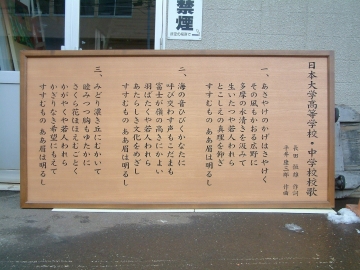 禁煙
日本大学高等学校・中学校校歌
長田 恒雄 作詞
平井 康三郎 作曲
一、あさやけのかげはさやけく
その風もかおる広野に
多摩の水清きを汲みて
生いたつや若人われら
とこしえの真理を仰ぎ
すすむもの ああ眉は明るし
二、海の音ひびくかなたに
呼び交わす声もこだまも
富士が嶺の高きにかよい
羽ばたくや若人われら
あたらしき文化をめざし
すすむもの ああ眉は明るし
三、みどり濃き丘にむかいて
踏みつつ胸もゆたかに
さくら花ほほえむごとく
かがやくや若人われら
かぎりなき希望にもえて
すすむもの ああ眉は明るし